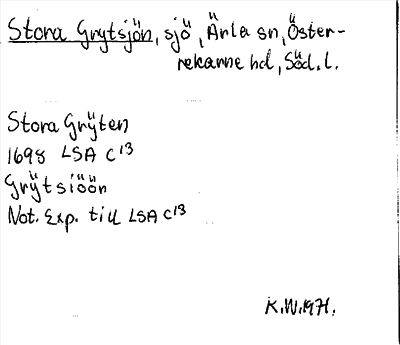 Stora Grytsjön, sjö, Ärla sn, Öster-
rekarne hd, Söd. l.
Stora Grÿten
1698 LSA C¹³
Grÿtsiöön
Not. Exp. till LSA C¹³
K.W. 1971.